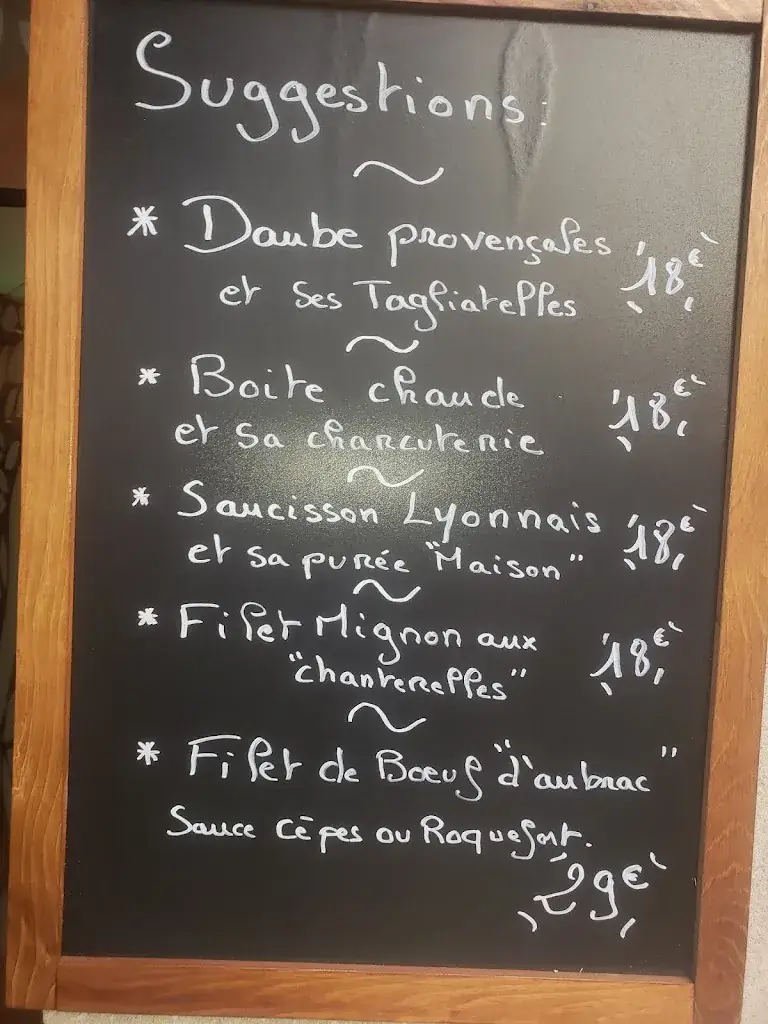 Suggestions:
* Daube provençales 18€
et ses Tagliatelles
* Boite chaude 18€
et sa charcuterie
* Saucisson Lyonnais 18€
et sa purée "Maison"
* Filet Mignon aux 18€
"chanterelles"
* Filet de Bœuf "d'aubrac"
Sauce Cèpes ou Roquefort.
29€